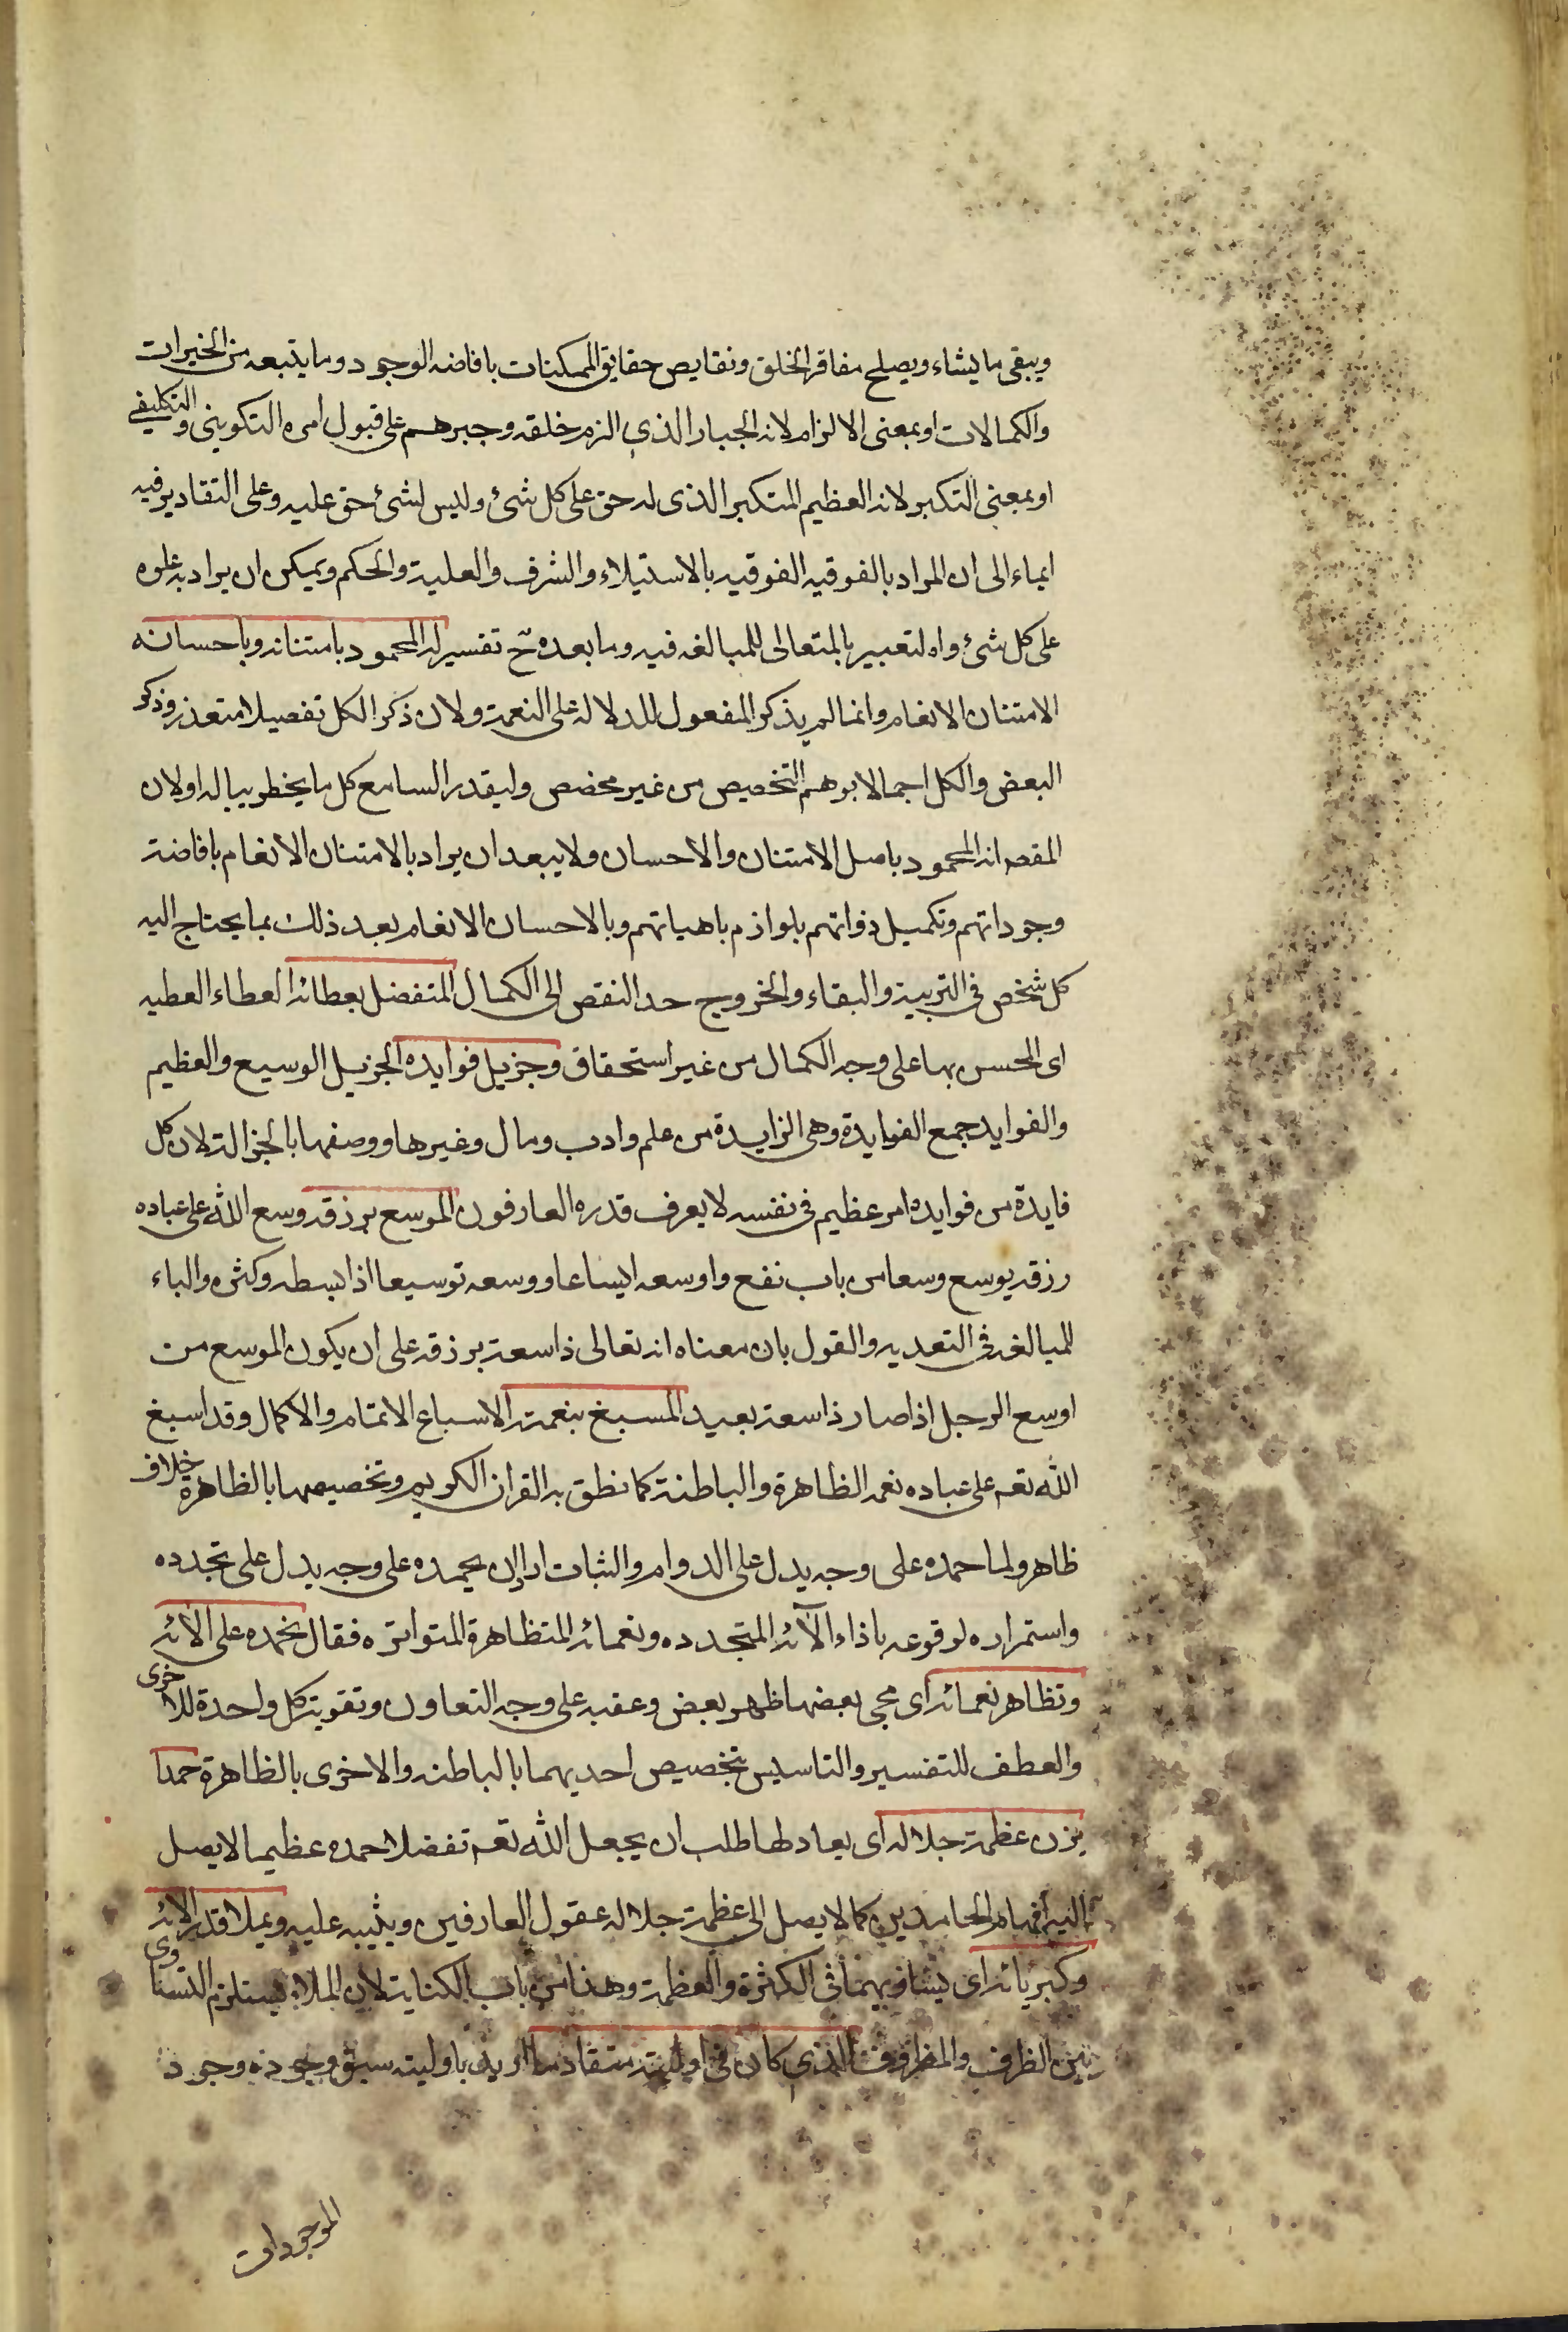 ويبقى ما يشاء ويصلح مفاقر الخلق ونقايص حقايق الممكنات بافاضه الوجود وما يتبعه من الخيرات
والكمالات او بمعنى الالزام لانه الجبار الذي الزم خلقه وجبرهم على قبول امره التكويني والتكليفي
او بمعنى التكبر لانه العظيم المتكبر الذى له حق على كل شئ وليس لشئ حق عليه وعلى التقادير فيه
ايماء الى ان المراد بالفوقيه الفوقيه بالاستيلاء والشرف والعلية والحكم ويمكن ان يراد به علوه
على كل شئ والتعبير بالمتعالى للمبالغه فيه وما بعده ح تفسير له المحمود بامتنانه وباحسانه
الامتنان الانعام وانما لم يذكر المفعول للدلاله على النعمة ولان ذكر الكل تفصيلا متعذر وذكر
البعض والكل اجمالا يوهم التخصيص من غير مخصص وليقدر السامع كل ما يخطر بباله اولان
المقصد انه المحمود باصل الامتنان والاحسان ولا يبعد ان يراد بالامتنان الانعام بافاضة
وجوداتهم وتكميل ذواتهم بلوازم ماهياتهم وبالاحسان الانعام بعد ذلك بما يحتاج اليه
كل شخص فى التربية والبقاء والخروج حد النقص الى الكمال المتفضل بعطائه العطاء العطيه
اى المحسن بها على وجه الكمال من غير استحقاق وجزيل فوايده الجزيل الوسيع والعظيم
والفوايد جمع الفايدة وهى الزايدة من علم وادب ومال وغيرها ووصفها بالجزالة لان كل
فايدة من فوايده امر عظيم فى نفسه لا يعرف قدره العارفون الموسع برزقه وسع الله على عباده
رزقه يوسع وسعا من باب نفع واوسعه ايساعا ووسعه توسيعا اذا بسطه وكثره والباء
للمبالغه فى التعديه والقول بان معناه انه تعالى ذا سعة برزقه على ان يكون الموسع من
اوسع الرجل اذا صار ذا سعة بعيد المسبغ بنعمته الاسباغ الاتمام والاكمال وقد اسبغ
الله تعم على عباده نعمه الظاهرة والباطنة كما نطق به القران الكريم وتخصيصها بالظاهرة خلاف
ظاهر ولما حمده على وجه يدل على الدوام والثبات اراد ان يحمده على وجه يدل على تجدده
واستمراره لوقوعه باذاء الآئه المتجدده ونعمائه المتظاهرة المتواتره فقال نحمده على الائه
وتظاهر نعمائه اى مجى بعضها ظهر بعض وعقبه على وجه التعاون وتقوية كل واحدة للاخرى
والعطف للتفسير والتاسيس بتخصيص احديهما بالباطنه والاخرى بالظاهرة حمدا
يزن عظمة جلاله اى يعادلها طلب ان يجعل الله تعم تفضلا حمده عظيما لا يصل
اليه افهام الحامدين كما لا يصل الى عظمة جلاله عقول العارفين ويثيبه عليه ويملا قدر الائه
وكبريائه اى يساويهما فى الكثرة والعظمة وهذا من باب الكناية لان الملاء يستلزم التساوى
بين الظرف والمظروف الذى كان فى اوليته متقادما اريد باوليته سبق وجوده وجود
الموجودات